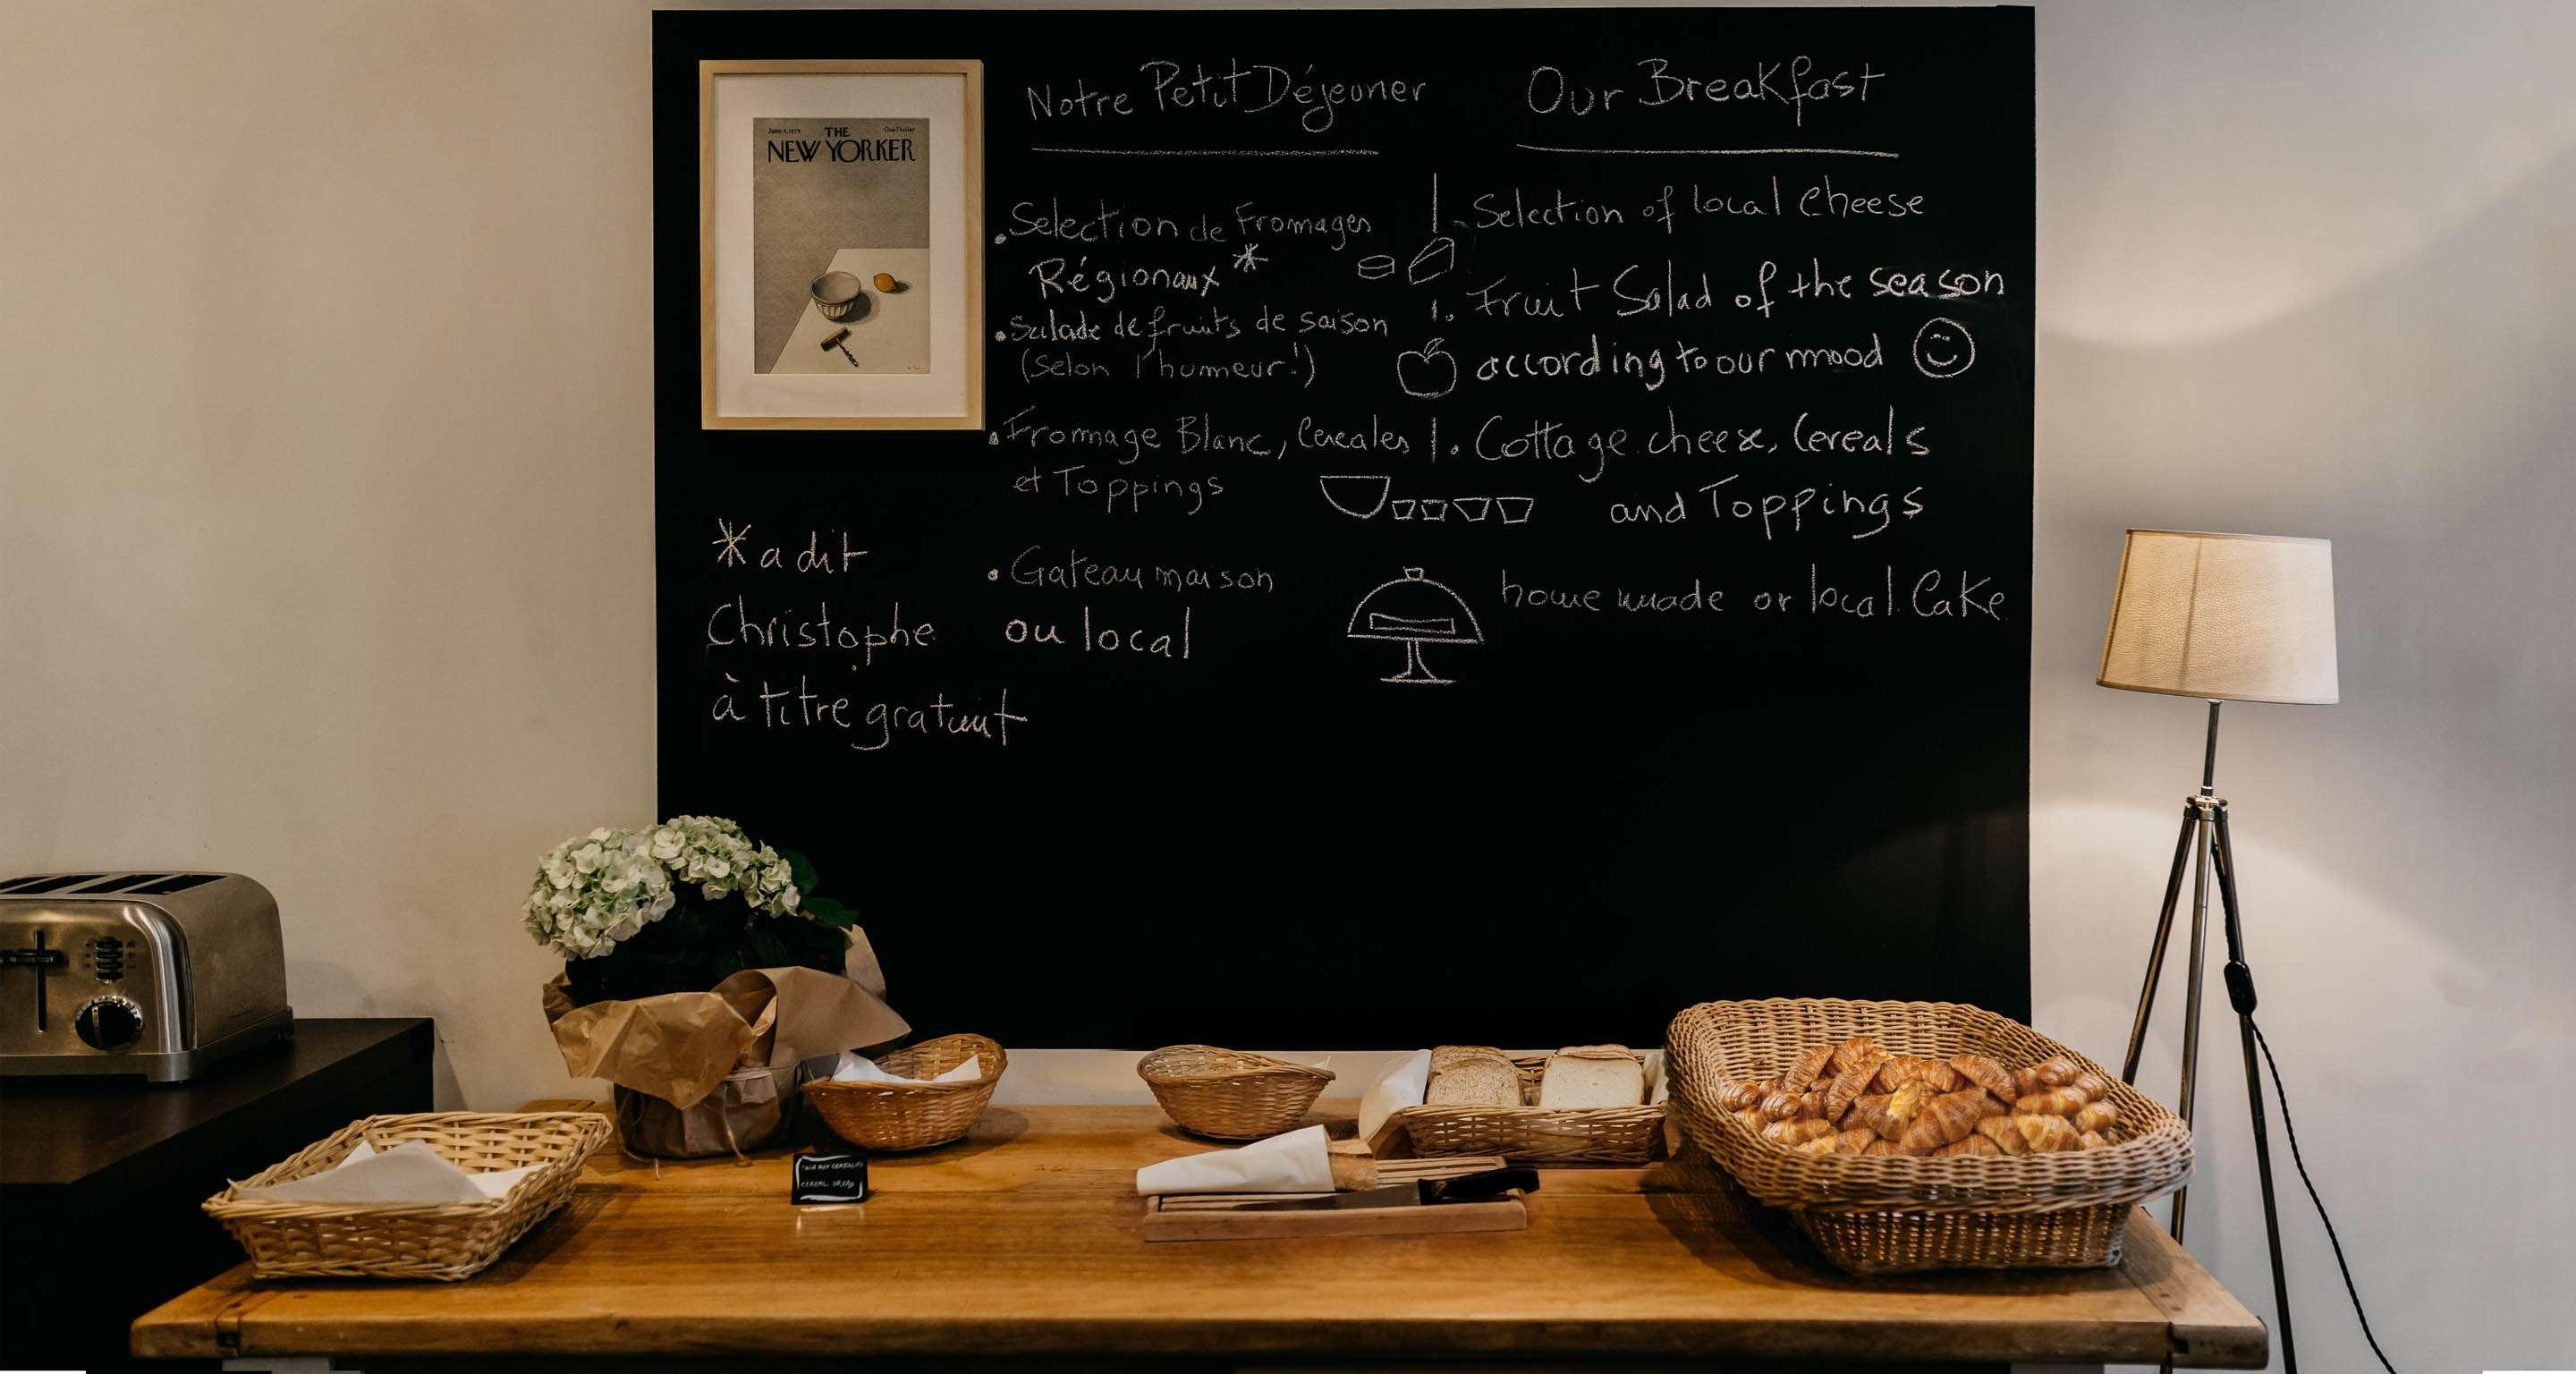 June 4, 1979
THE
One Dollar
NEW YORKER
Notre Petit Déjeuner
. Selection de Fromages
Régionaux *
. Salade de fruits de saison
(Selon l'humeur!)
. Fromage Blanc, Cereales
et Toppings
. Gateau maison
ou local
* a dit
Christophe
à titre gratuit
Our Breakfast
. Selection of local cheese
. Fruit Salad of the season
according to our mood
. Cottage cheese, Cereals
and Toppings
home made or local Cake
CEREAL